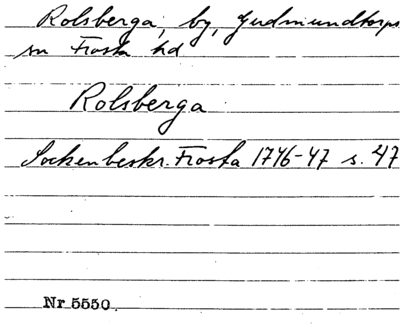 Rolsberga, by, Gudmundtorps
sn Frosta hd
Rolsberga
Sockenbeskr. Frosta 1746-47 s. 47
Nr 5550.